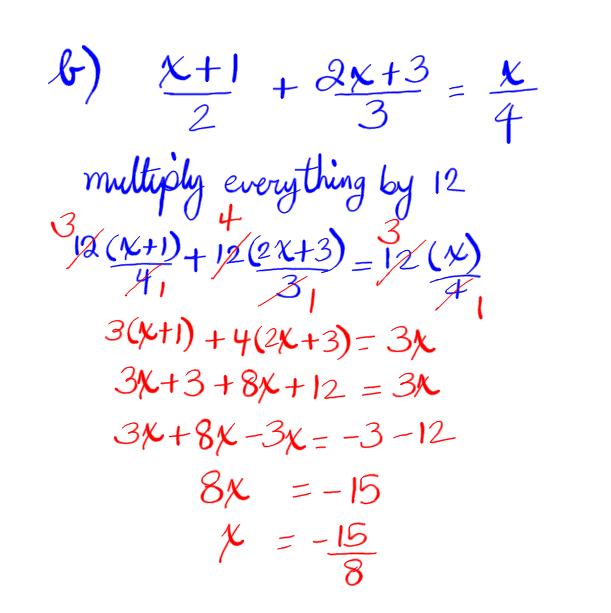 b) (x+1)/2 + (2x+3)/3 = x/4
multiply everything by 12
3 4 3
12(x+1)/4 + 12(2x+3)/3 = 12(x)/4
1 1 1
3(x+1) + 4(2x+3) = 3x
3x+3+8x+12 = 3x
3x+8x-3x = -3-12
8x = -15
x = -15/8